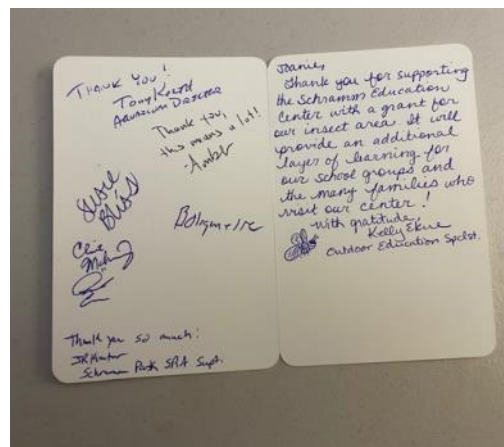 THANK YOU!
Tony
AQUARIUM DIRECTOR
Thank you,
this means a lot!
Amber
Susie
Bliss
Thank you so much!
Schramm Park SRA Supt.
Joanie,
Thank you for supporting
the Schramm Education
Center with a grant for
our insect area. It will
provide an additional
layer of learning for
our school groups and
the many families who
visit our center!
With gratitude,
Kelly Ekue
Outdoor Education Spclst.